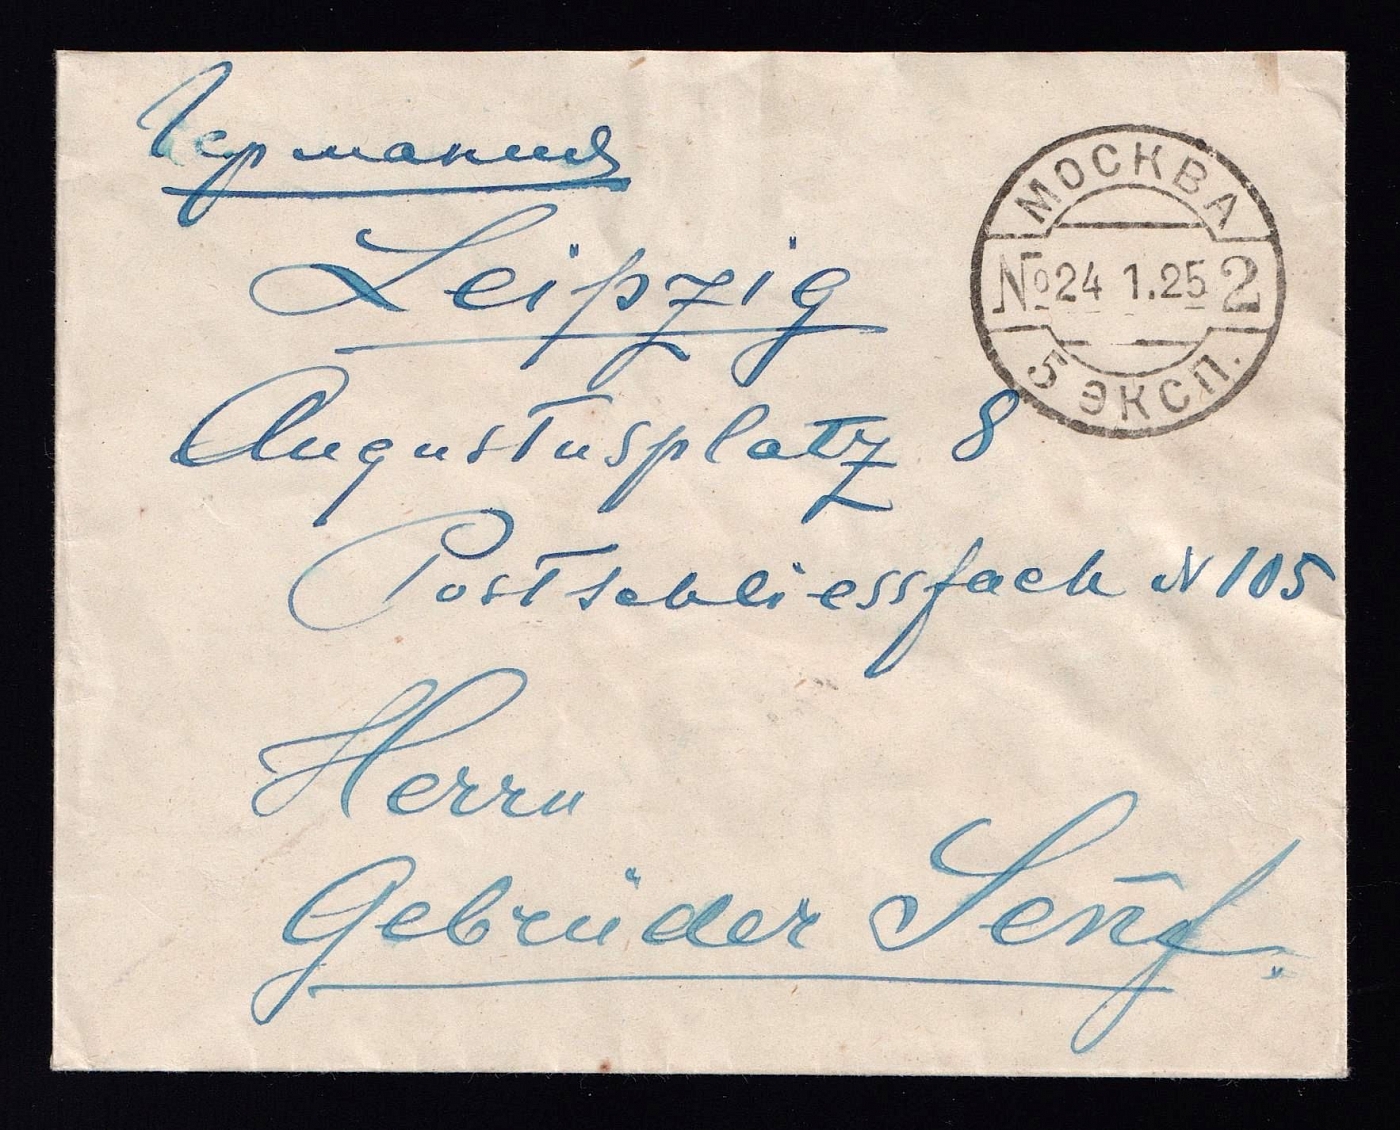 Германия
Leipzig
Augustusplatz 8
Postschliessfach N 105
Herrn
Gebrüder Senf.
МОСКВА
№ 24 1.25 2
5 ЭКСП.